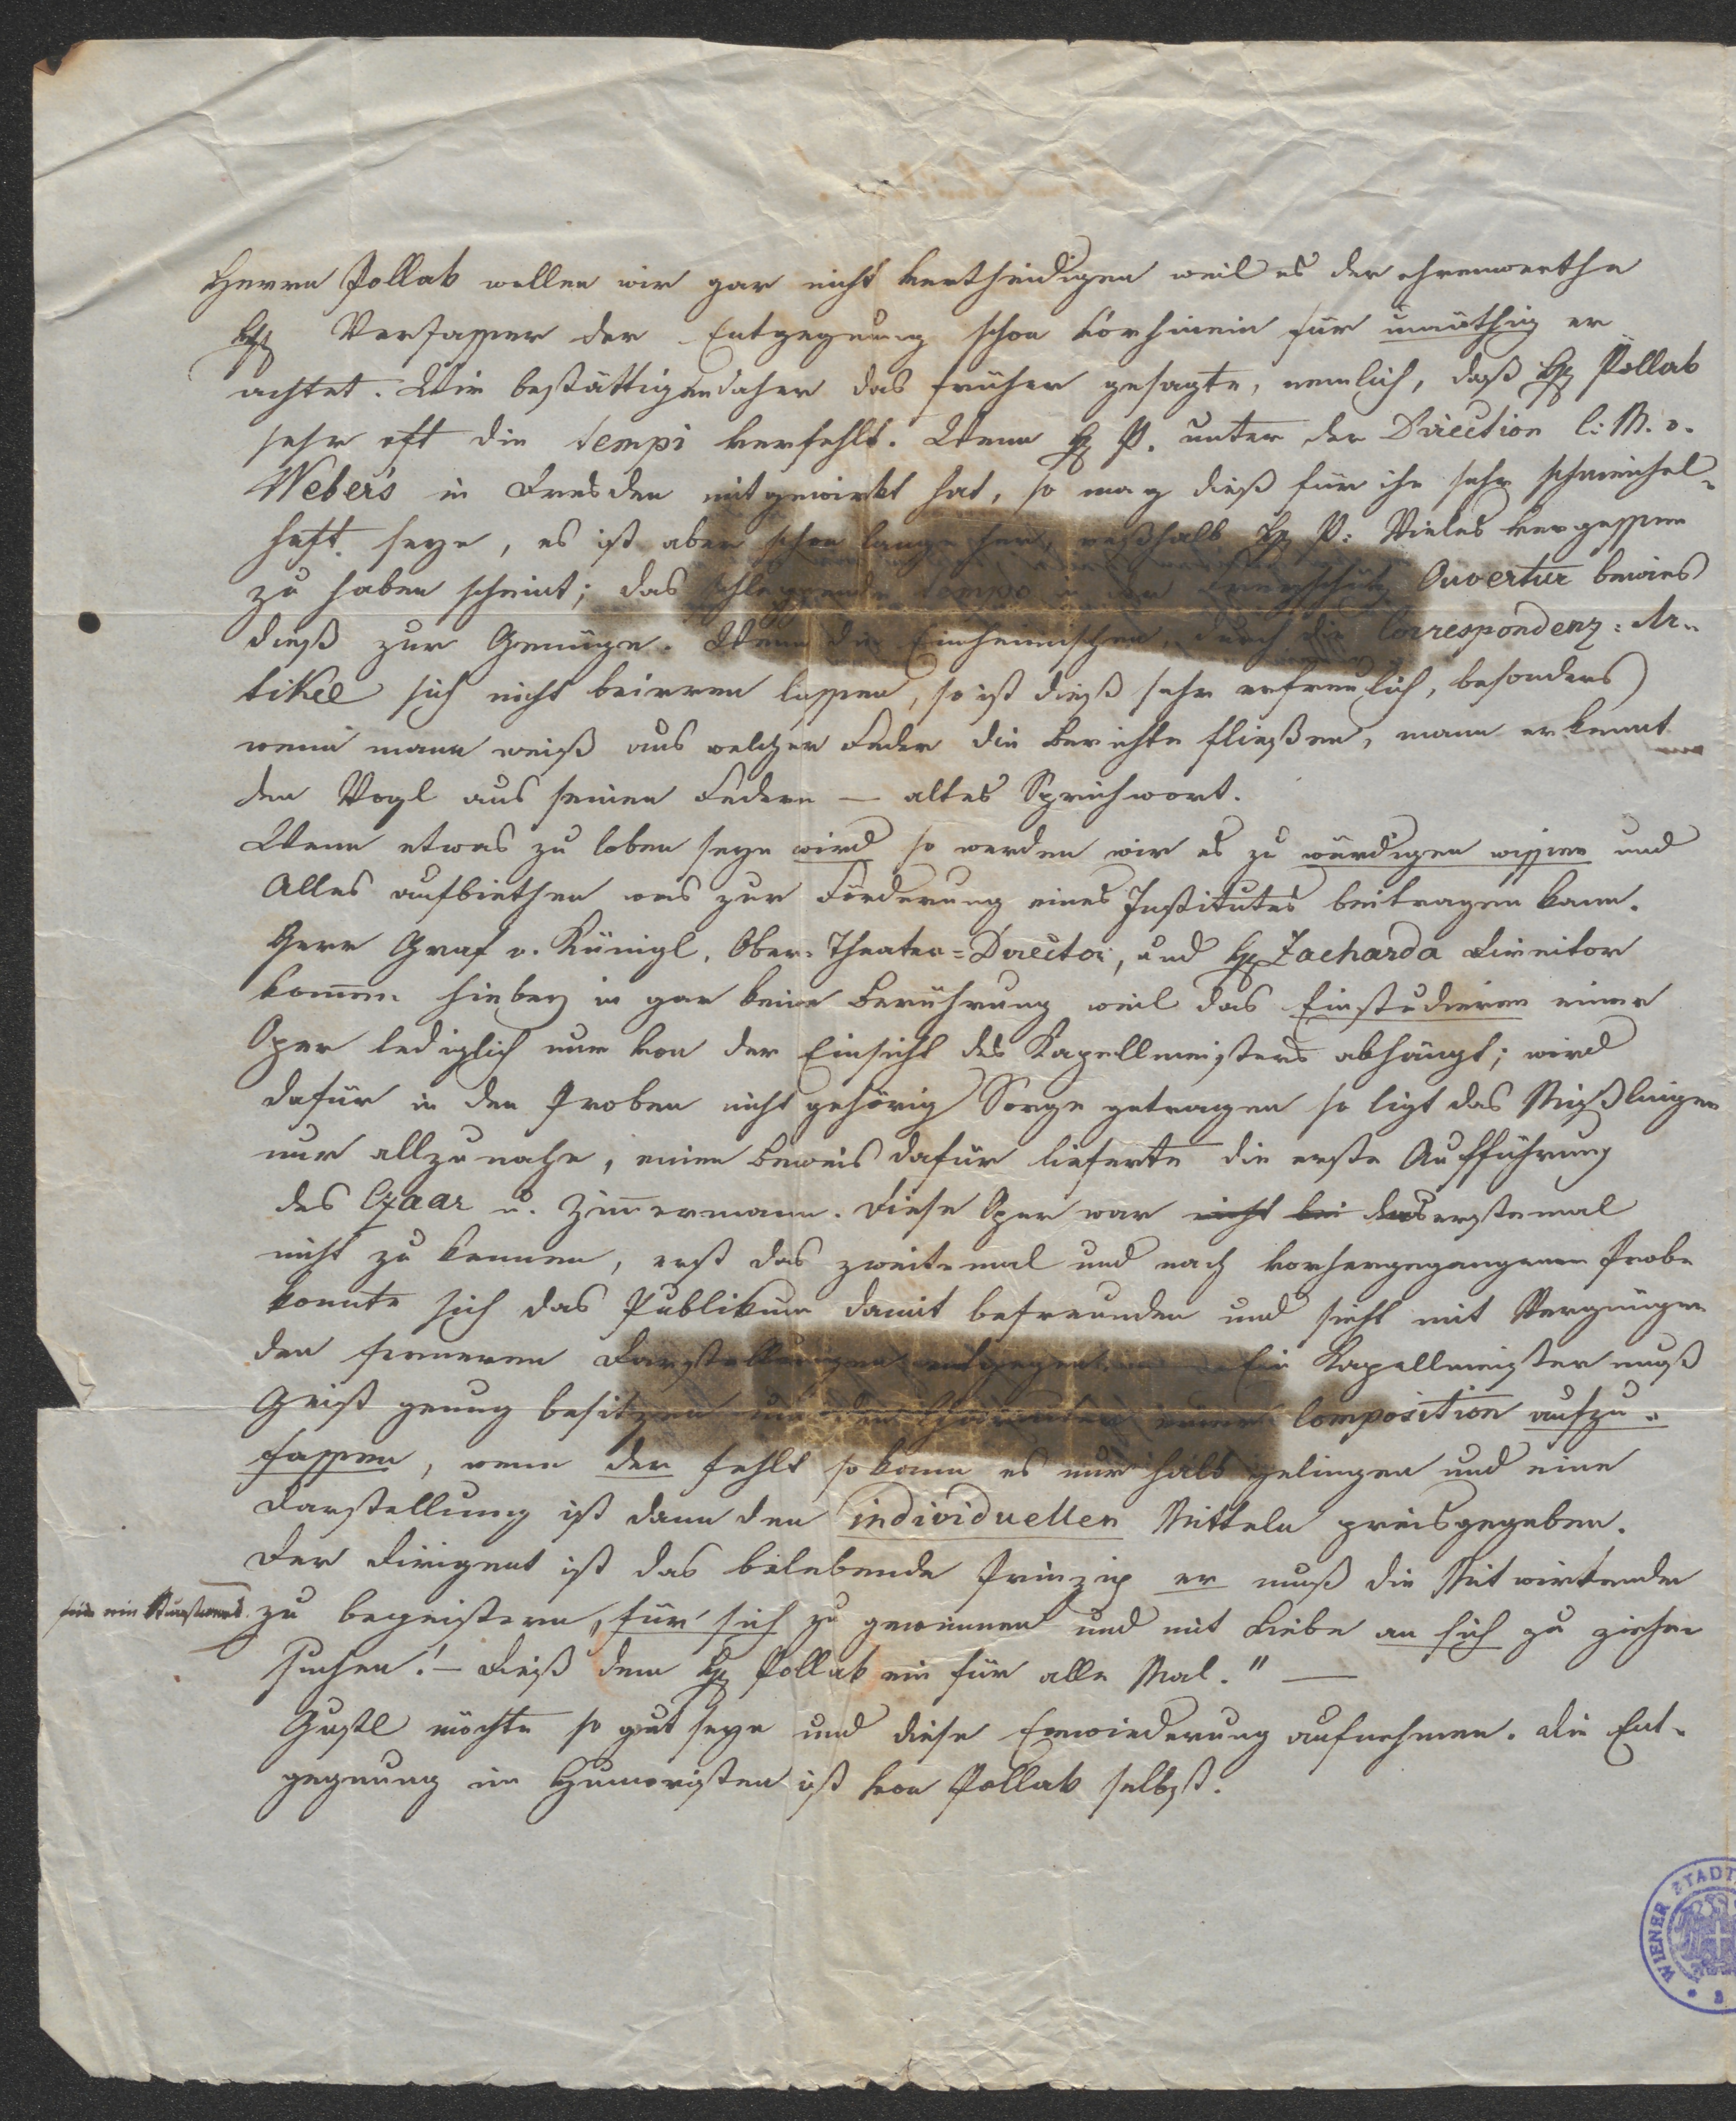 Herrn Pollak wollen wir gar nicht vertheidigen weil es der ehrenwerthe
H: Verfasser der Entgegnung schon vorhinein für unnöthig er
achtet. Wir bestättigen daher das früher gesagte, nemlich, daß H: Pollak
sehr oft die Tempi verfehlt. Wenn H: P. unter der Direction C: M. v.
Weber's in Dresden mitgewirkt hat, so mag dieß für ihn sehr schmeichel-
haft seyn, es ist aber schon lange her, weßhalb H: P: Vieles vergessen
zu haben scheint; das schleppende Tempo in der Freyschütz Ouvertur bewies
dieß zur Genüge. Wenn die Einheimischen, durch die Correspondenz: Ar-
tikel sich nicht beirren lassen, so ist dieß sehr erfreulich, besonders
wenn mann weiß aus welcher Feder die Berichte fließen, mann erkennt
den Vogl aus seinen Federn — altes Sprichwort.
Wenn etwas zu loben seyn wird so werden wir es zu würdigen wissen und
Alles aufbiethen was zur Förderung eines Institutes beitragen kann.
Herr Graf v. Künigl, Ober-Theater=Director, und H: Zacharda Direitor
kommen hiebey in gar keine Berührung weil das Einstudieren einer
Oper lediglich nur von der Einsicht des Kapellmeisters abhängt; wird
dafür in den Proben nicht gehörig Sorge getragen so ligt das Mißlingen
nur allzunahe, einen Beweis dafür lieferte die erste Aufführung
des Czaar u. Zimmermann. Diese Oper war nicht bei das erstemal
nicht zu kennen, erst das zweitemal und nach vorhergegangener Probe
konnte sich das Publikum damit befreunden und sieht mit Vergnügen
den ferneren Darstellungen entgegen. Ein Kapellmeister muß
Geist genug besitzen um den einer Composition aufzu-
fassen, wenn der fehlt so kann es nur halb gelingen und eine
Darstellung ist dann den individuellen Mitteln preisgegeben.
Der Dirigent ist das belebende Prinzip er muß die Mitwirkenden
für ein Kunstwerk zu begeistern, für sich zu gewinnen und mit Liebe an sich zu ziehen
suchen! — Dieß dem H: Pollak ein für alle Mal." —
Gustl möchte so gut seyn und diese Erwiederung aufnehmen. Die Ent-
gegnung im Humoristen ist von Pollak selbst.
WIENER STADT